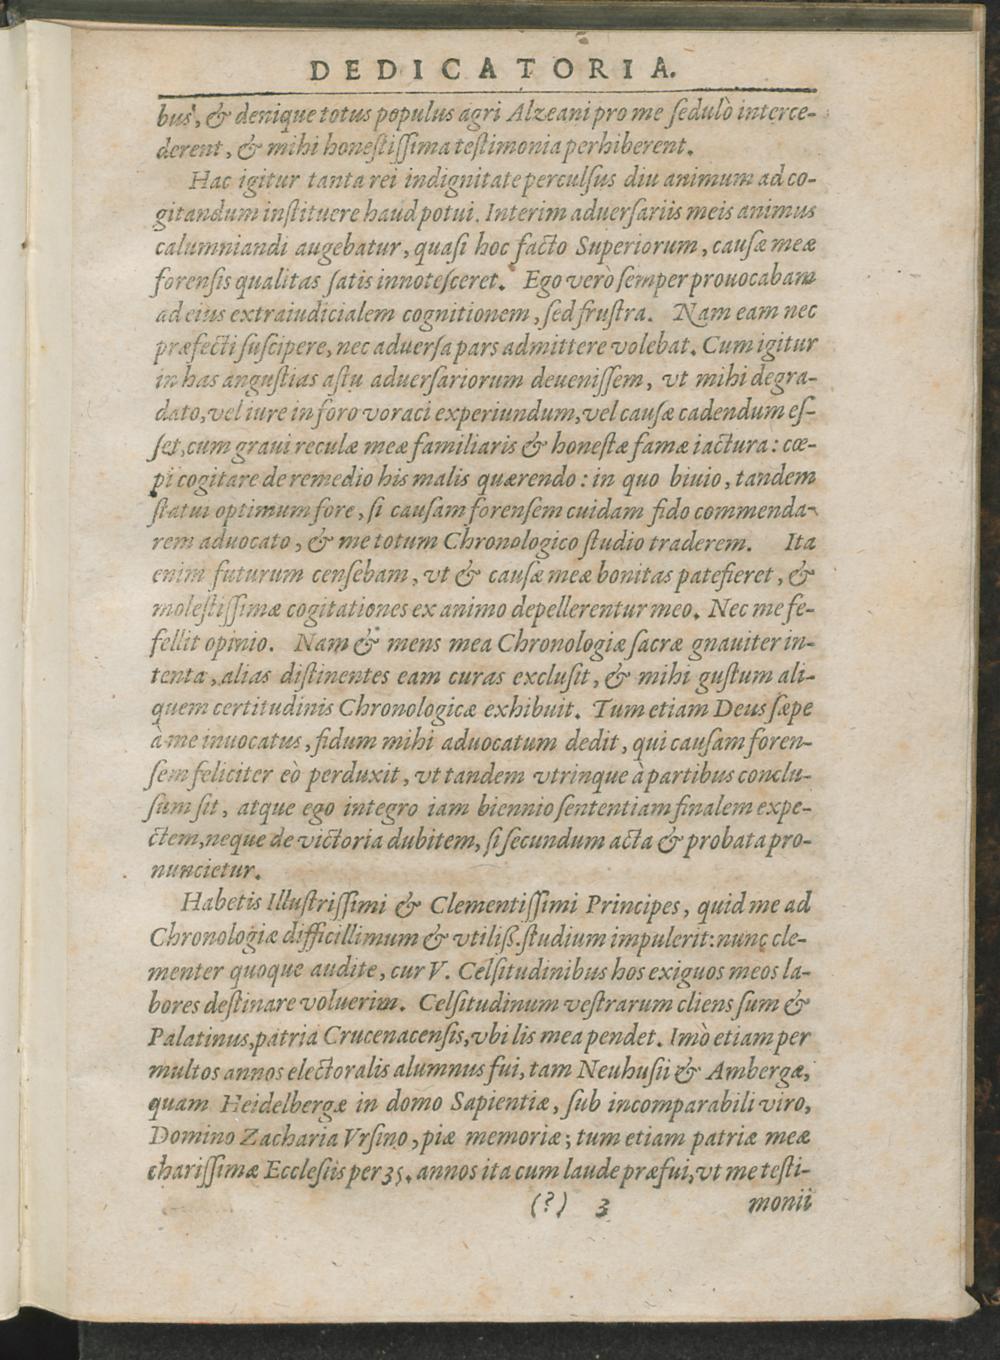 DEDICATORIA.
bus, & denique totus populus agri Alzeani pro me ſedulò interce-
derent, & mihi honeſtiſſima teſtimonia perhiberent.
Hac igitur tanta rei indignitate perculſus diu animum ad co-
gitandum inſtituere haud potui. Interim aduerſariis meis animus
calumniandi augebatur, quaſi hoc facto Superiorum, cauſæ meæ
forenſis qualitas ſatis innoteſceret. Ego verò ſemper prouocabam
ad eius extraiudicialem cognitionem, ſed fruſtra. Nam eam nec
præfecti ſuſcipere, nec aduerſa pars admittere volebat. Cum igitur
in has anguſtias aſtu aduerſariorum deueniſſem, vt mihi degra-
dato, vel iure in foro voraci experiundum, vel cauſæ cadendum eſ-
ſet, cum graui reculæ meæ familiaris & honeſtæ famæ iactura: cœ-
pi cogitare de remedio his malis quærendo: in quo biuio, tandem
ſtatui optimum fore, ſi cauſam forenſem cuidam fido commenda-
rem aduocato, & me totum Chronologico ſtudio traderem. Ita
enim futurum cenſebam, vt & cauſæ meæ bonitas patefieret, &
moleſtiſſimæ cogitationes ex animo depellerentur meo. Nec me fe-
fellit opinio. Nam & mens mea Chronologiæ ſacræ gnauiter in-
tenta, alias diſtinentes eam curas excluſit, & mihi guſtum ali-
quem certitudinis Chronologicæ exhibuit. Tum etiam Deus ſæpe
à me inuocatus, fidum mihi aduocatum dedit, qui cauſam foren-
ſem feliciter eò perduxit, vt tandem vtrinque à partibus conclu-
ſum ſit, atque ego integro iam biennio ſententiam finalem expe-
ctem, neque de victoria dubitem, ſi ſecundum acta & probata pro-
nuncietur.
Habetis Illuſtriſſimi & Clementiſſimi Principes, quid me ad
Chronologiæ difficillimum & vtiliß. ſtudium impulerit: nunc cle-
menter quoque audite, cur V. Celſitudinibus hos exiguos meos la-
bores deſtinare voluerim. Celſitudinum veſtrarum cliens ſum &
Palatinus, patria Crucenacenſis, vbi lis mea pendet. Imò etiam per
multos annos electoralis alumnus fui, tam Neuhuſii & Ambergæ,
quam Heidelbergæ in domo Sapientiæ, ſub incomparabili viro,
Domino Zacharia Vrſino, piæ memoriæ; tum etiam patriæ meæ
chariſſimæ Eccleſiis per 35. annos ita cum laude præfui, vt me teſti-
(?) 3 monii